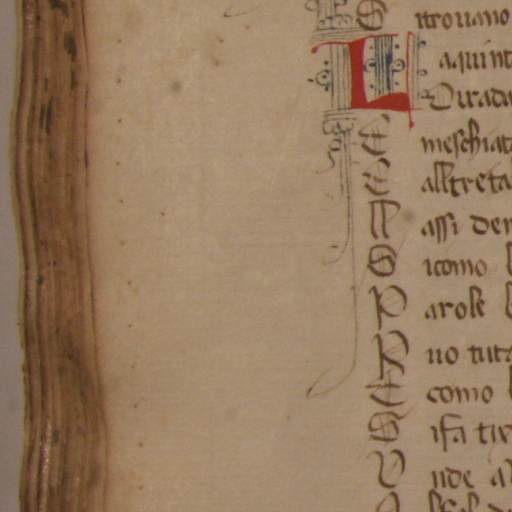 S itrouano
L aquint
Dirada
E meschiat
E alltreta
A assi den
S icomo l
P arole l
R uo tuta
E como l
S ifa tir
U nde al